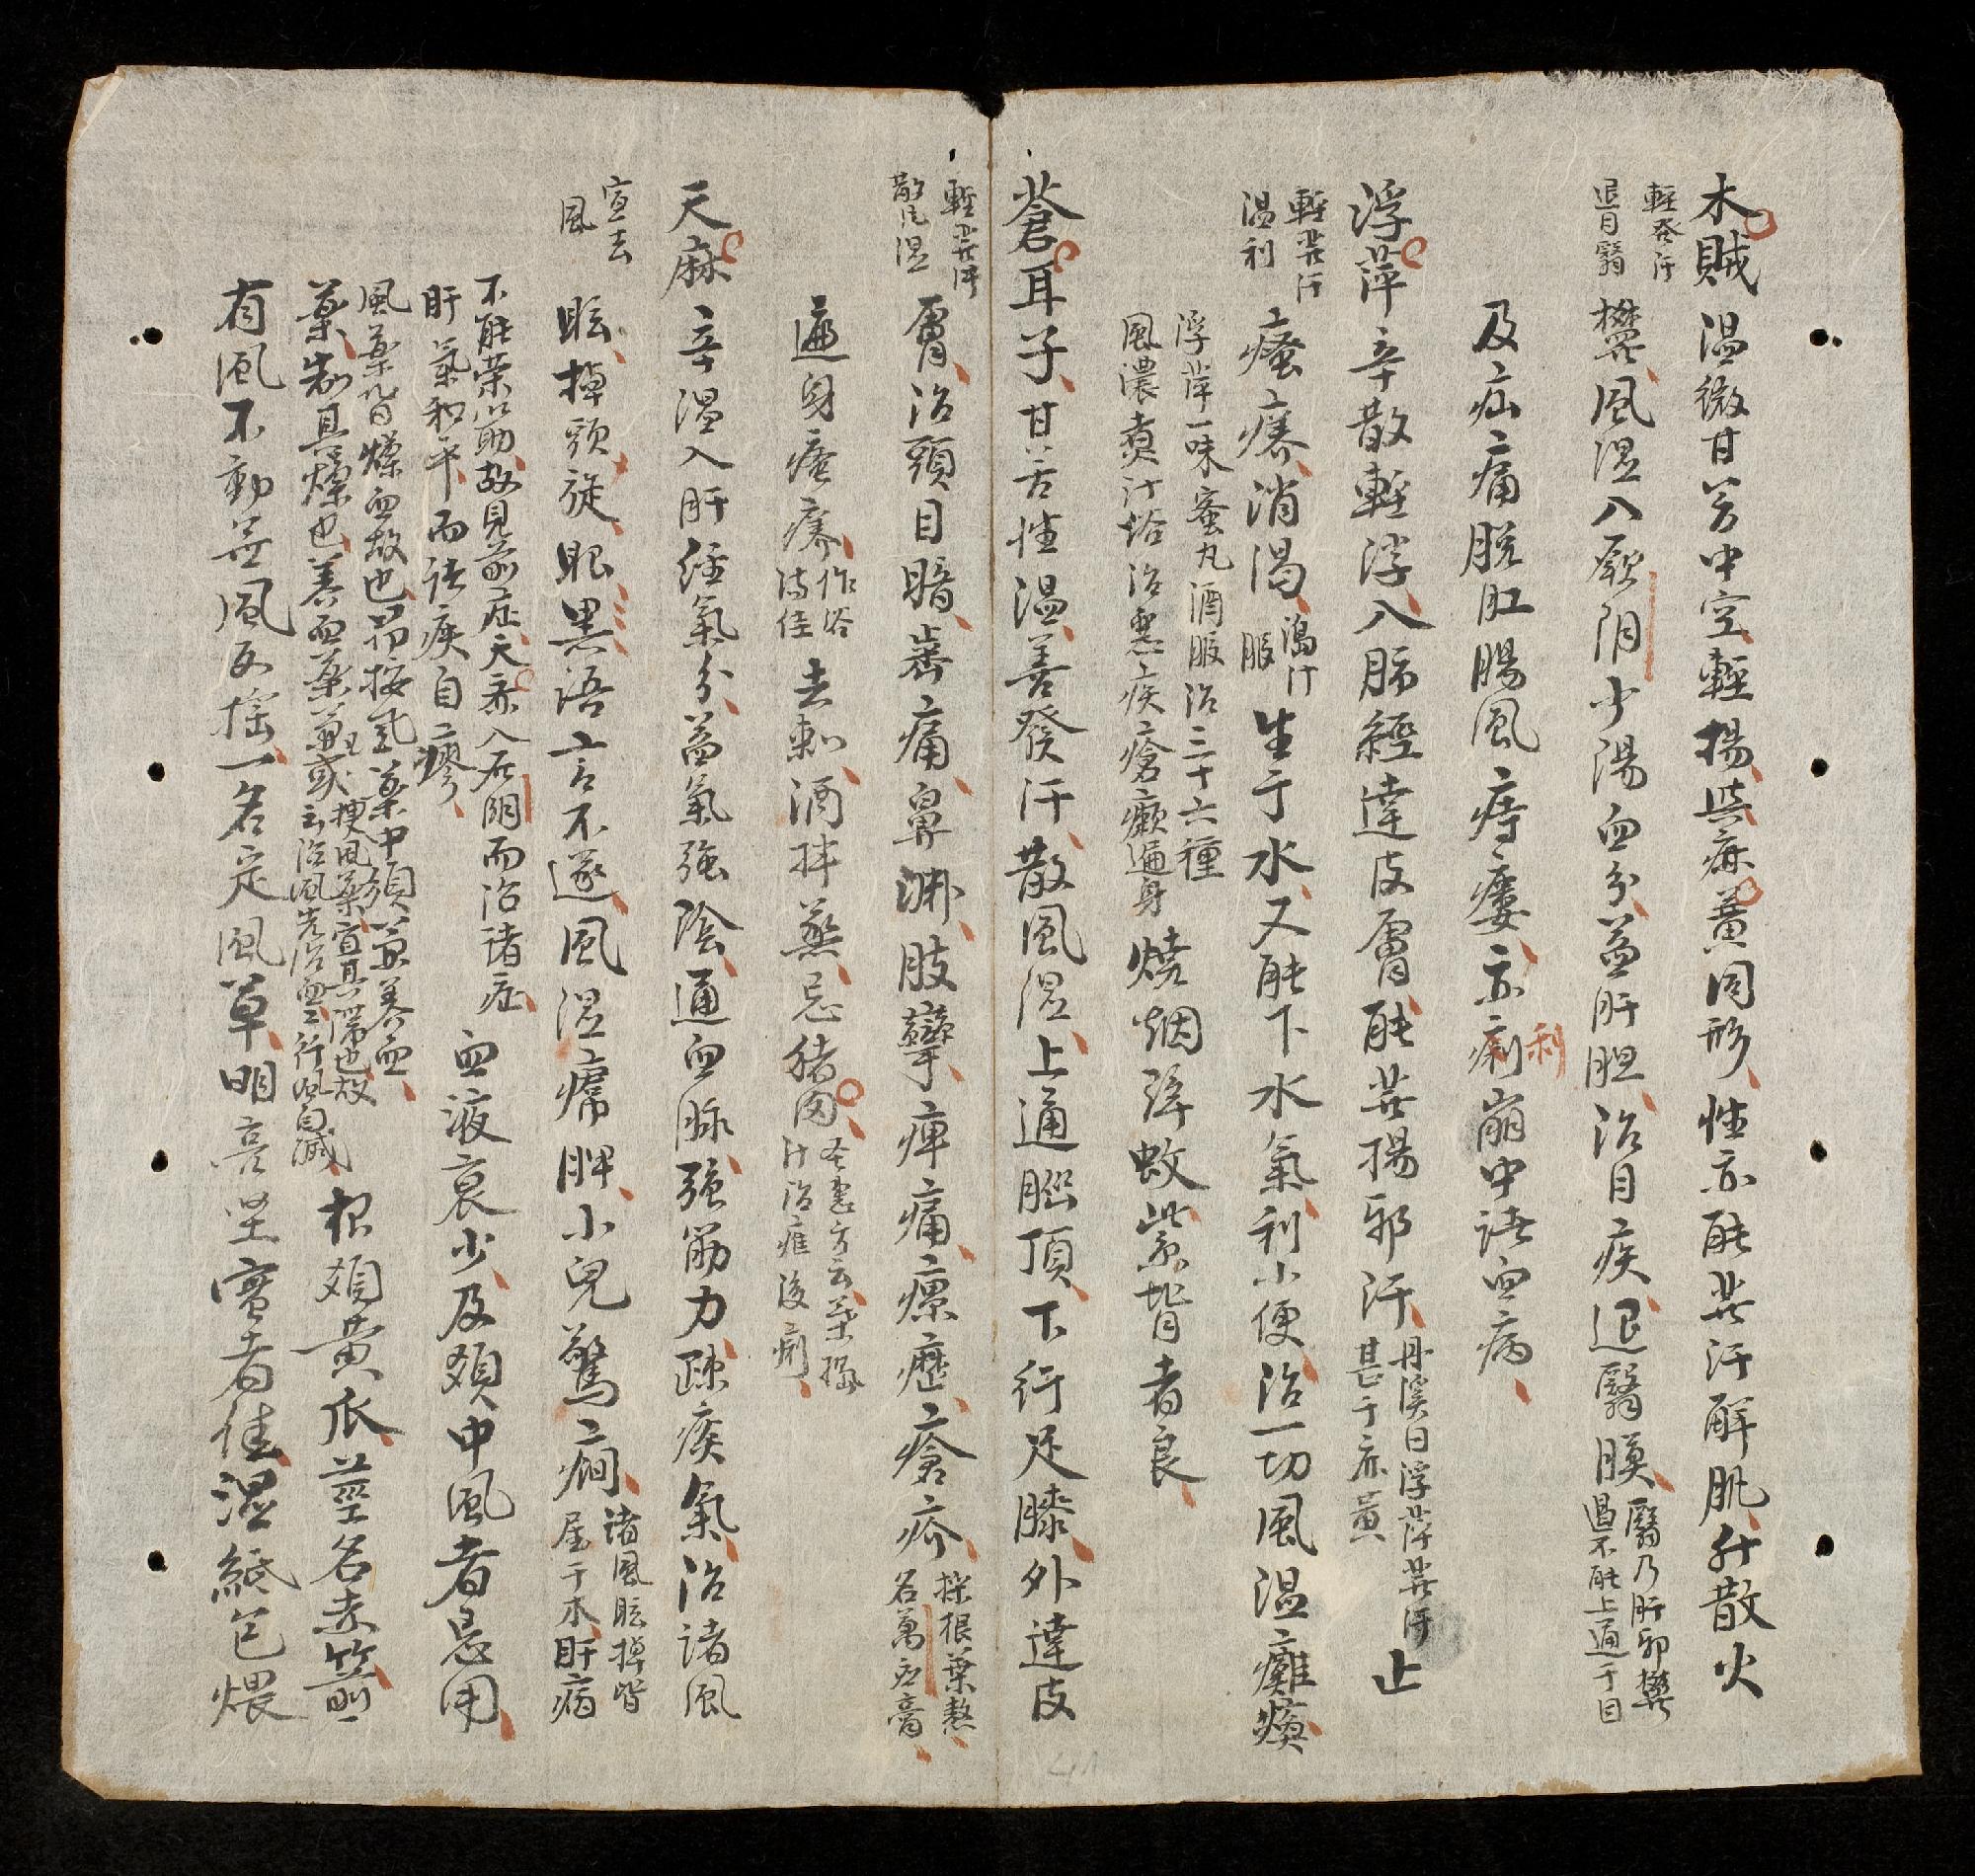 木賊 温微甘苦中空輕揚與麻黄同形性亦能發汗解肌升散火
輕發汗
退目翳
欝風湿入厥阴少陽血分益肝胆治目疾退翳膜
翳乃肝邪欝
遏不能上通于目
及疝痛脱肛腸風痔瘻亦痢崩中諸血病
利
浮萍 辛散輕浮入肺經達皮膚能發揚邪汗
丹溪曰浮萍發汗
甚于麻黄
止
輕發汗
温利
瘙癢消渴
搗汁
服
生于水又能下水氣利小便治一切風温癱瘓
浮萍一味蜜丸酒服治三十六種
風濃煑汁浴治惡疾瘡癩遍身
燒烟辟蚊紫背者良
蒼耳子 甘苦性温善發汗散風湿上通腦頂下行足膝外達皮
輕發汗
散風湿
膚治頭目暗齒痛鼻淵肢攣痺痛瘰癧瘡疥
採根葉熬
名萬应膏
遍身瘙癢
作浴
湯佳
去刺酒拌蒸忌猪肉
圣惠方云葉搗
汁治產後痢
天麻 辛温入肝經氣分益氣強陰通血脉強筋力疎痰氣治諸風
宣去
風
眩掉頭旋眼黒語言不遂風湿㾽脾小兒驚癇
諸風眩掉皆
屋于木肝病
不能荣筋故見前症天麻入厥阴而治諸症
肝氣和平而諸疾自瘳
血液衰少及類中風者忌用
風藥皆燥血故也昂按風藥中須兼養血
藥制其燥也養血藥
或
梗風藥宣其滯也故
云治風先治血血行風自滅
根類黄瓜莖名赤箭
有風不動無風反搖一名定風草明亮坚實者佳湿紙包煨